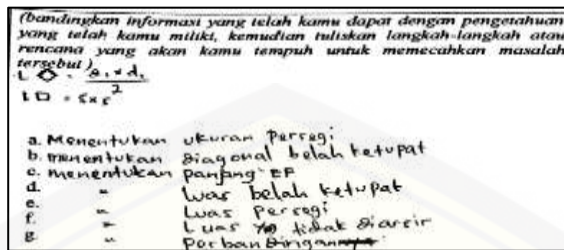 (bandingkan informasi yang telah kamu dapat dengan pengetahuan
yang telah kamu miliki, kemudian tuliskan langkah-langkah atau
rencana yang akan kamu tempuh untuk memecahkan masalah
tersebut)
L ◇ = d₁ × d₂
2
L □ = s × s
a. Menentukan ukuran Persegi
b. menentukan diagonal belah ketupat
c. menentukan panjang EF
d. " luas belah ketupat
e. " Luas Persegi
f. " Luas tidak diarsir
g. " Perbandingan